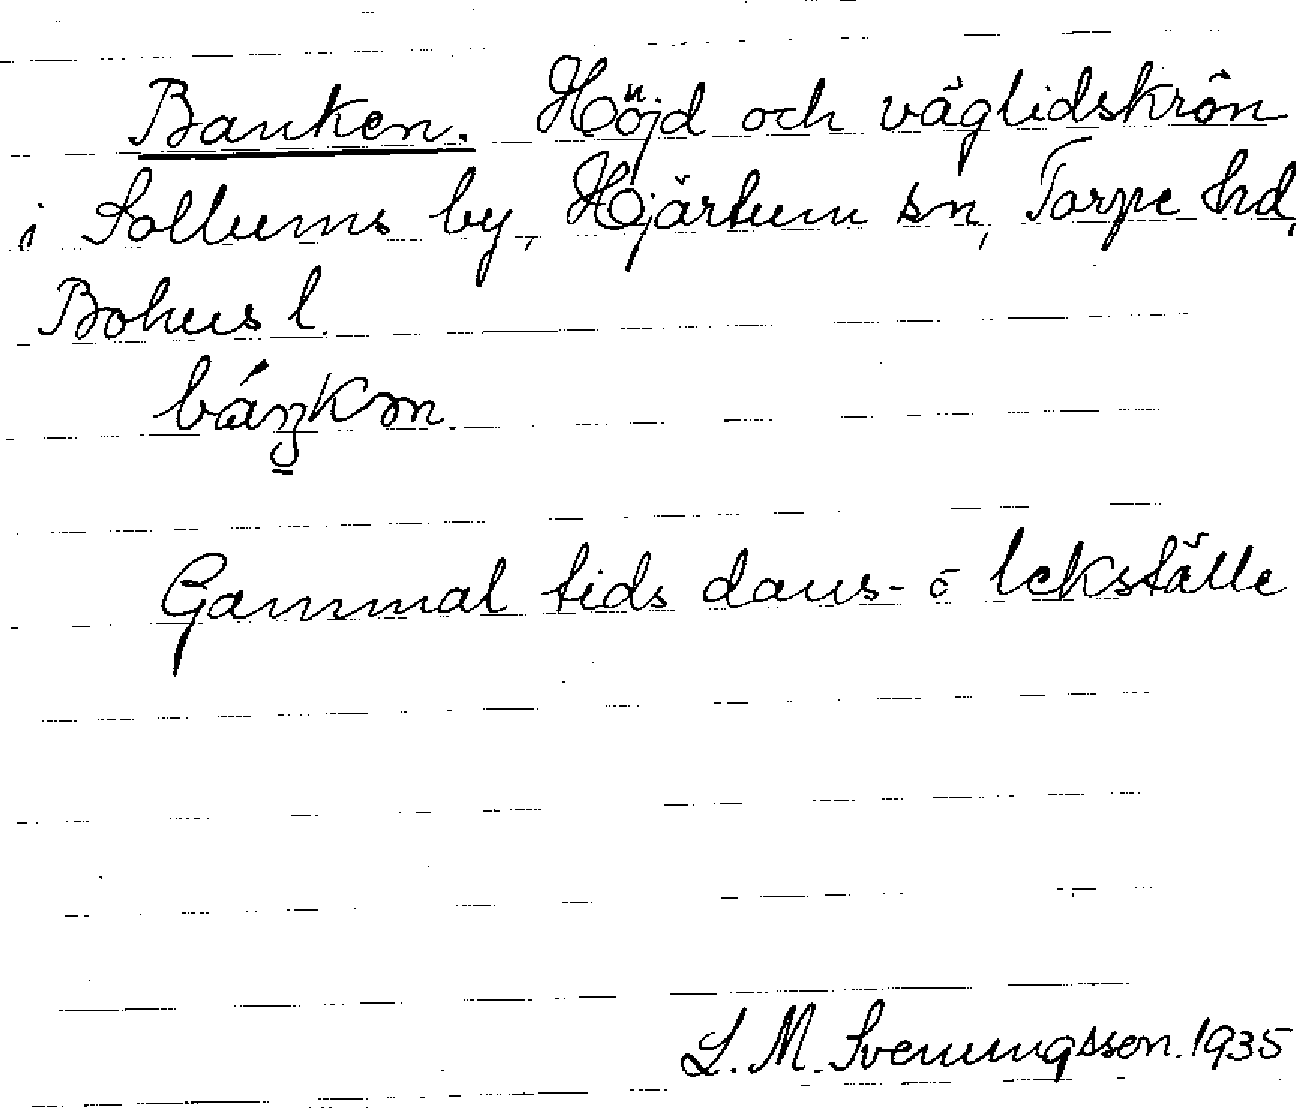 Banken. Höjd och väglidskrön
i Sollums by, Hjärtum sn, Torpe hd,
Bohus l.
Gammal tids dans- o lekställe
L. M. Svenungsson. 1935